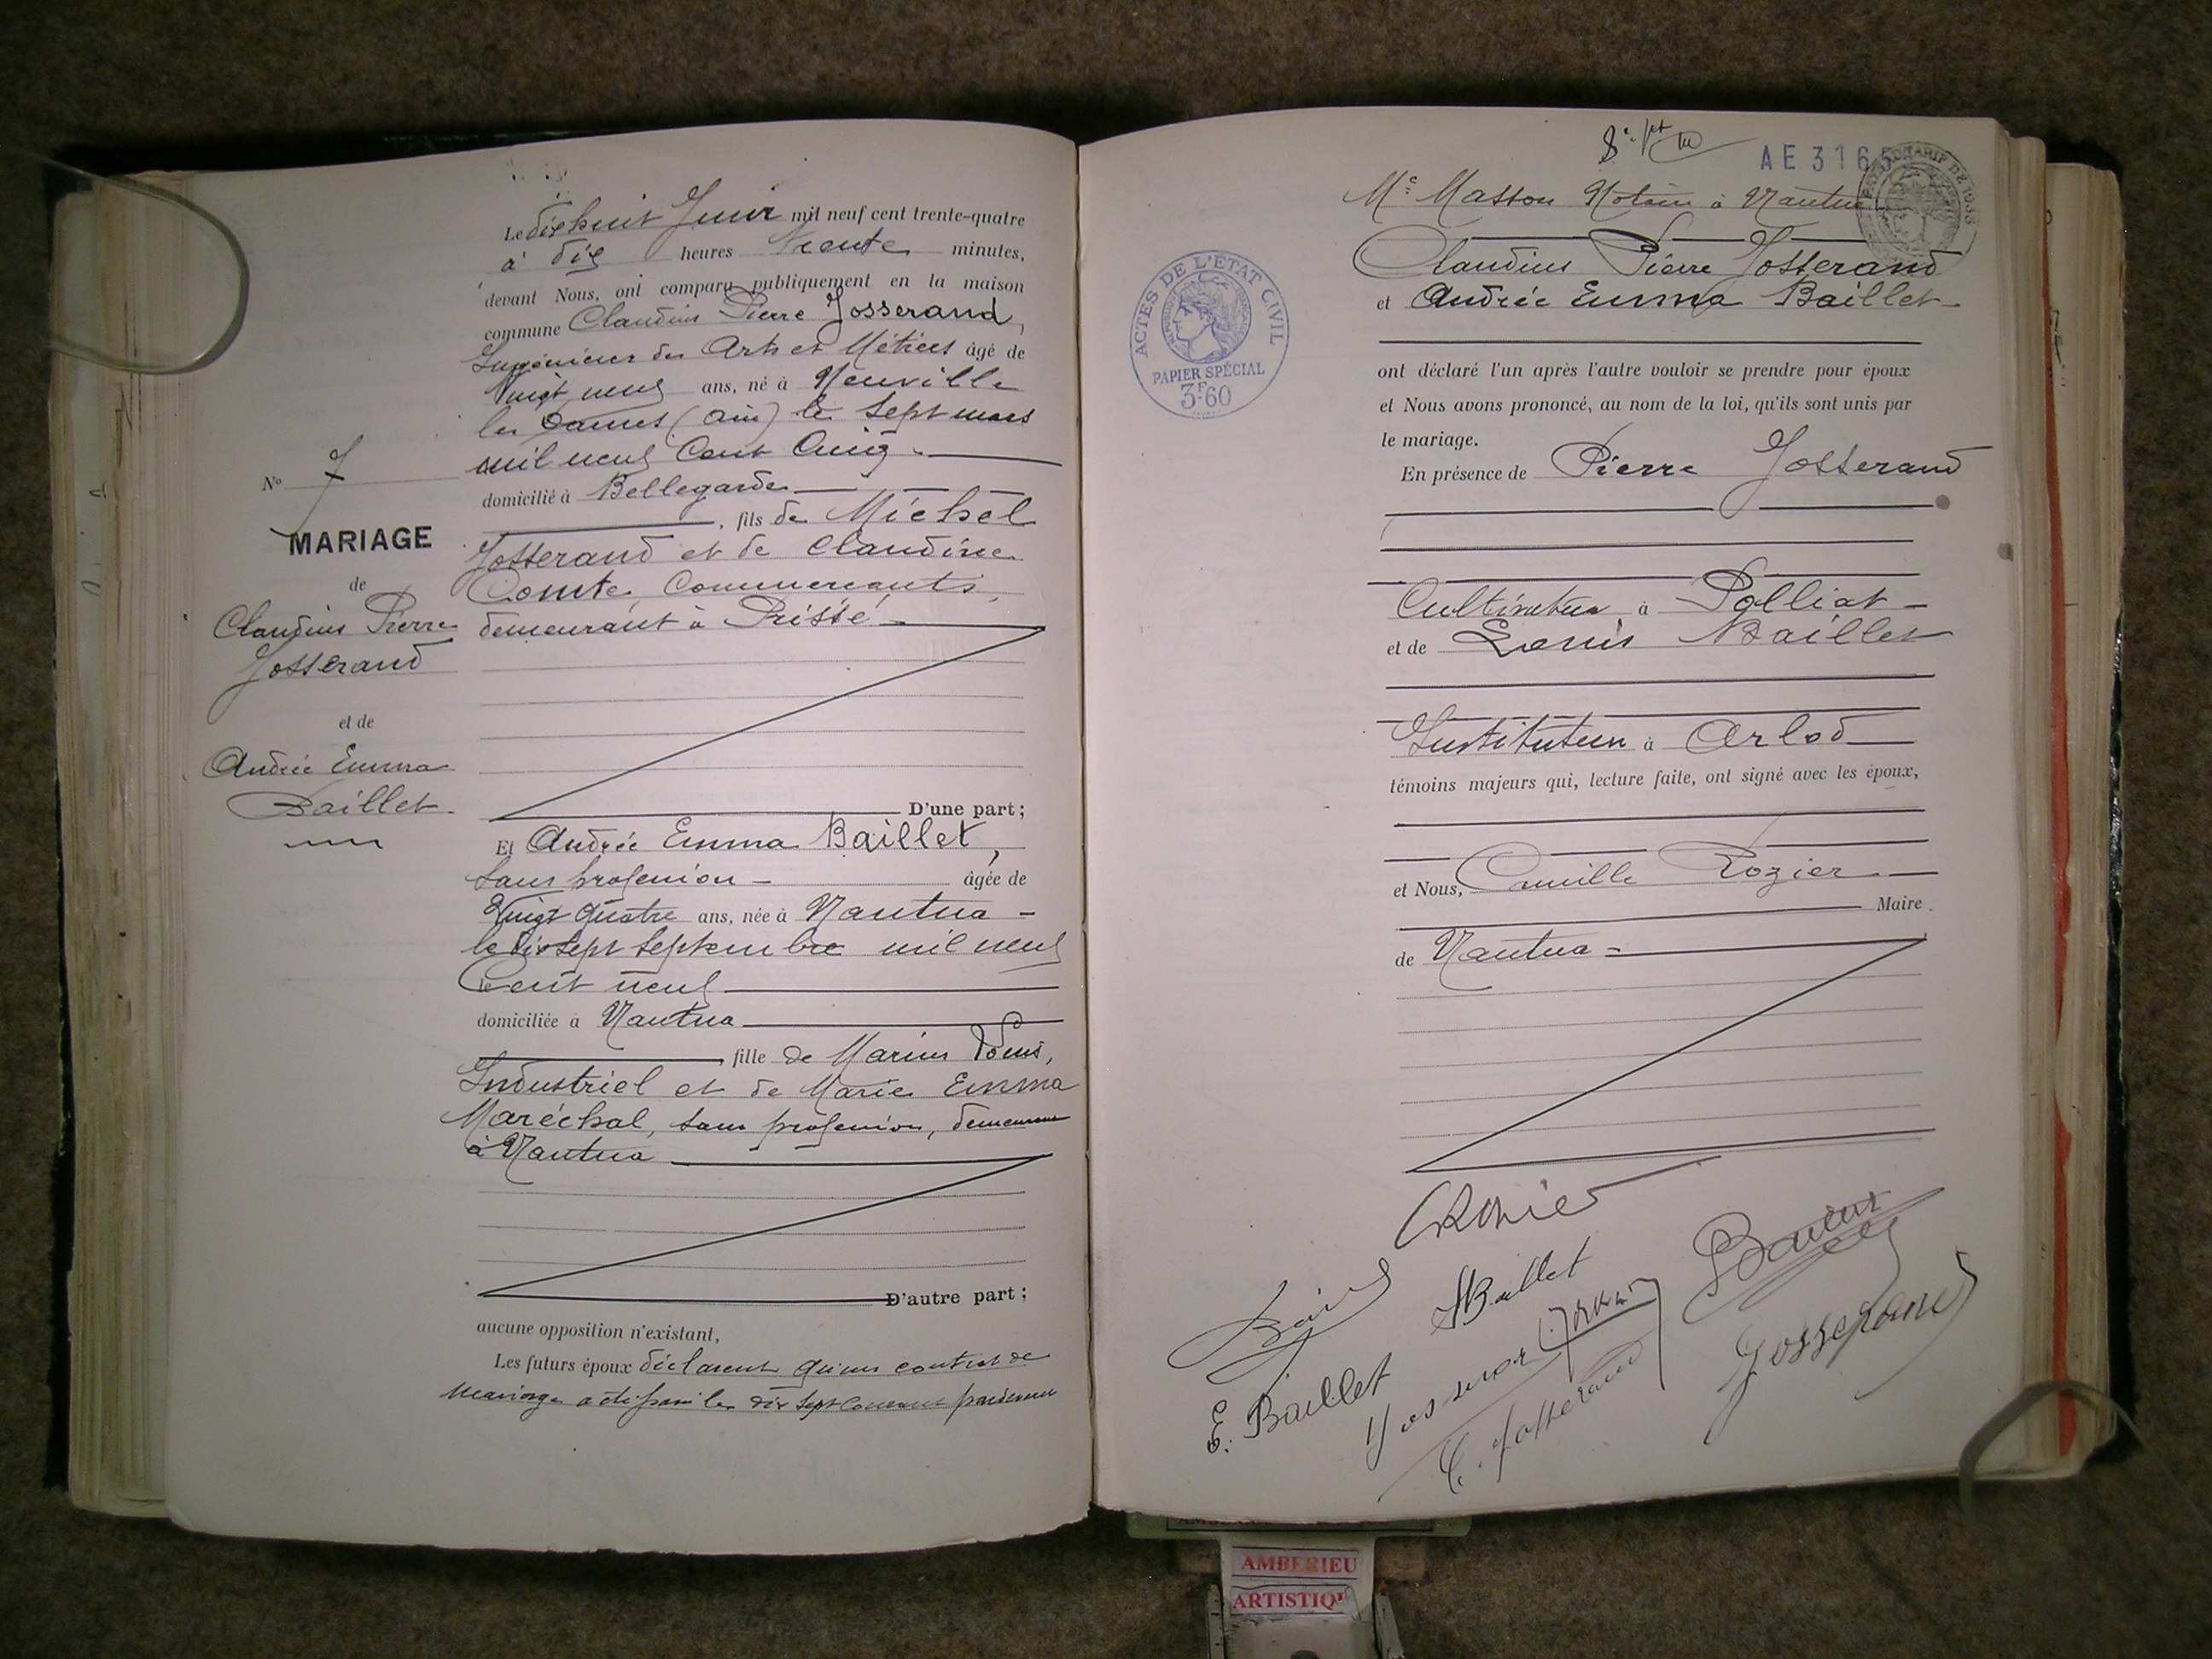 Le dix huit Juin mil neuf cent trente-quatre
à dix heures trente minutes,
devant Nous, ont comparu publiquement en la maison
commune Claudius Pierre Josserand,
Ingénieur des Arts et Métiers âgé de
Vingt neuf ans, né à Neuville
les Dames (ain) le sept mars
mil neuf Cent Cinq
domicilié à Bellegarde
, fils de Michel
Josserand et de Claudine
Comte, Commerçants,
demeurant à Prissé
D'une part;
Nº 7
MARIAGE
de
Claudius Pierre
Josserand
et de
Andrée Emma
Baillet
Et Andrée Emma Baillet,
sans profession âgée de
Vingt quatre ans, née à Nantua
le dix sept septembre mil neuf
Cent neuf
domiciliée à Nantua
, fille de Marius
Industriel et de Marie Emma
Maréchal, sans profession, demeurant
à Nantua
D'autre part;
aucune opposition n'existant,
Les futurs époux déclarent qu'un contrat de
mariage a été passé le dix sept Courant pardevant
AE 316
Me Masson Notaire à Nantua
Claudius Pierre Josserand
et Andrée Emma Baillet
ACTES DE L'ÉTAT CIVIL
PAPIER SPÉCIAL
3F60
ont déclaré l'un après l'autre vouloir se prendre pour époux
et Nous avons prononcé, au nom de la loi, qu'ils sont unis par
le mariage.
En présence de Pierre Josserand
Cultivateur à Polliat
et de Louis Baillet
Instituteur à Arlod
témoins majeurs qui, lecture faite, ont signé avec les époux,
et Nous, Camille Rozier
Maire
de Nantua
CRozier
Baillet
E. Baillet
C. Josserand
Josserand
AMBERIEU
ARTISTIQ